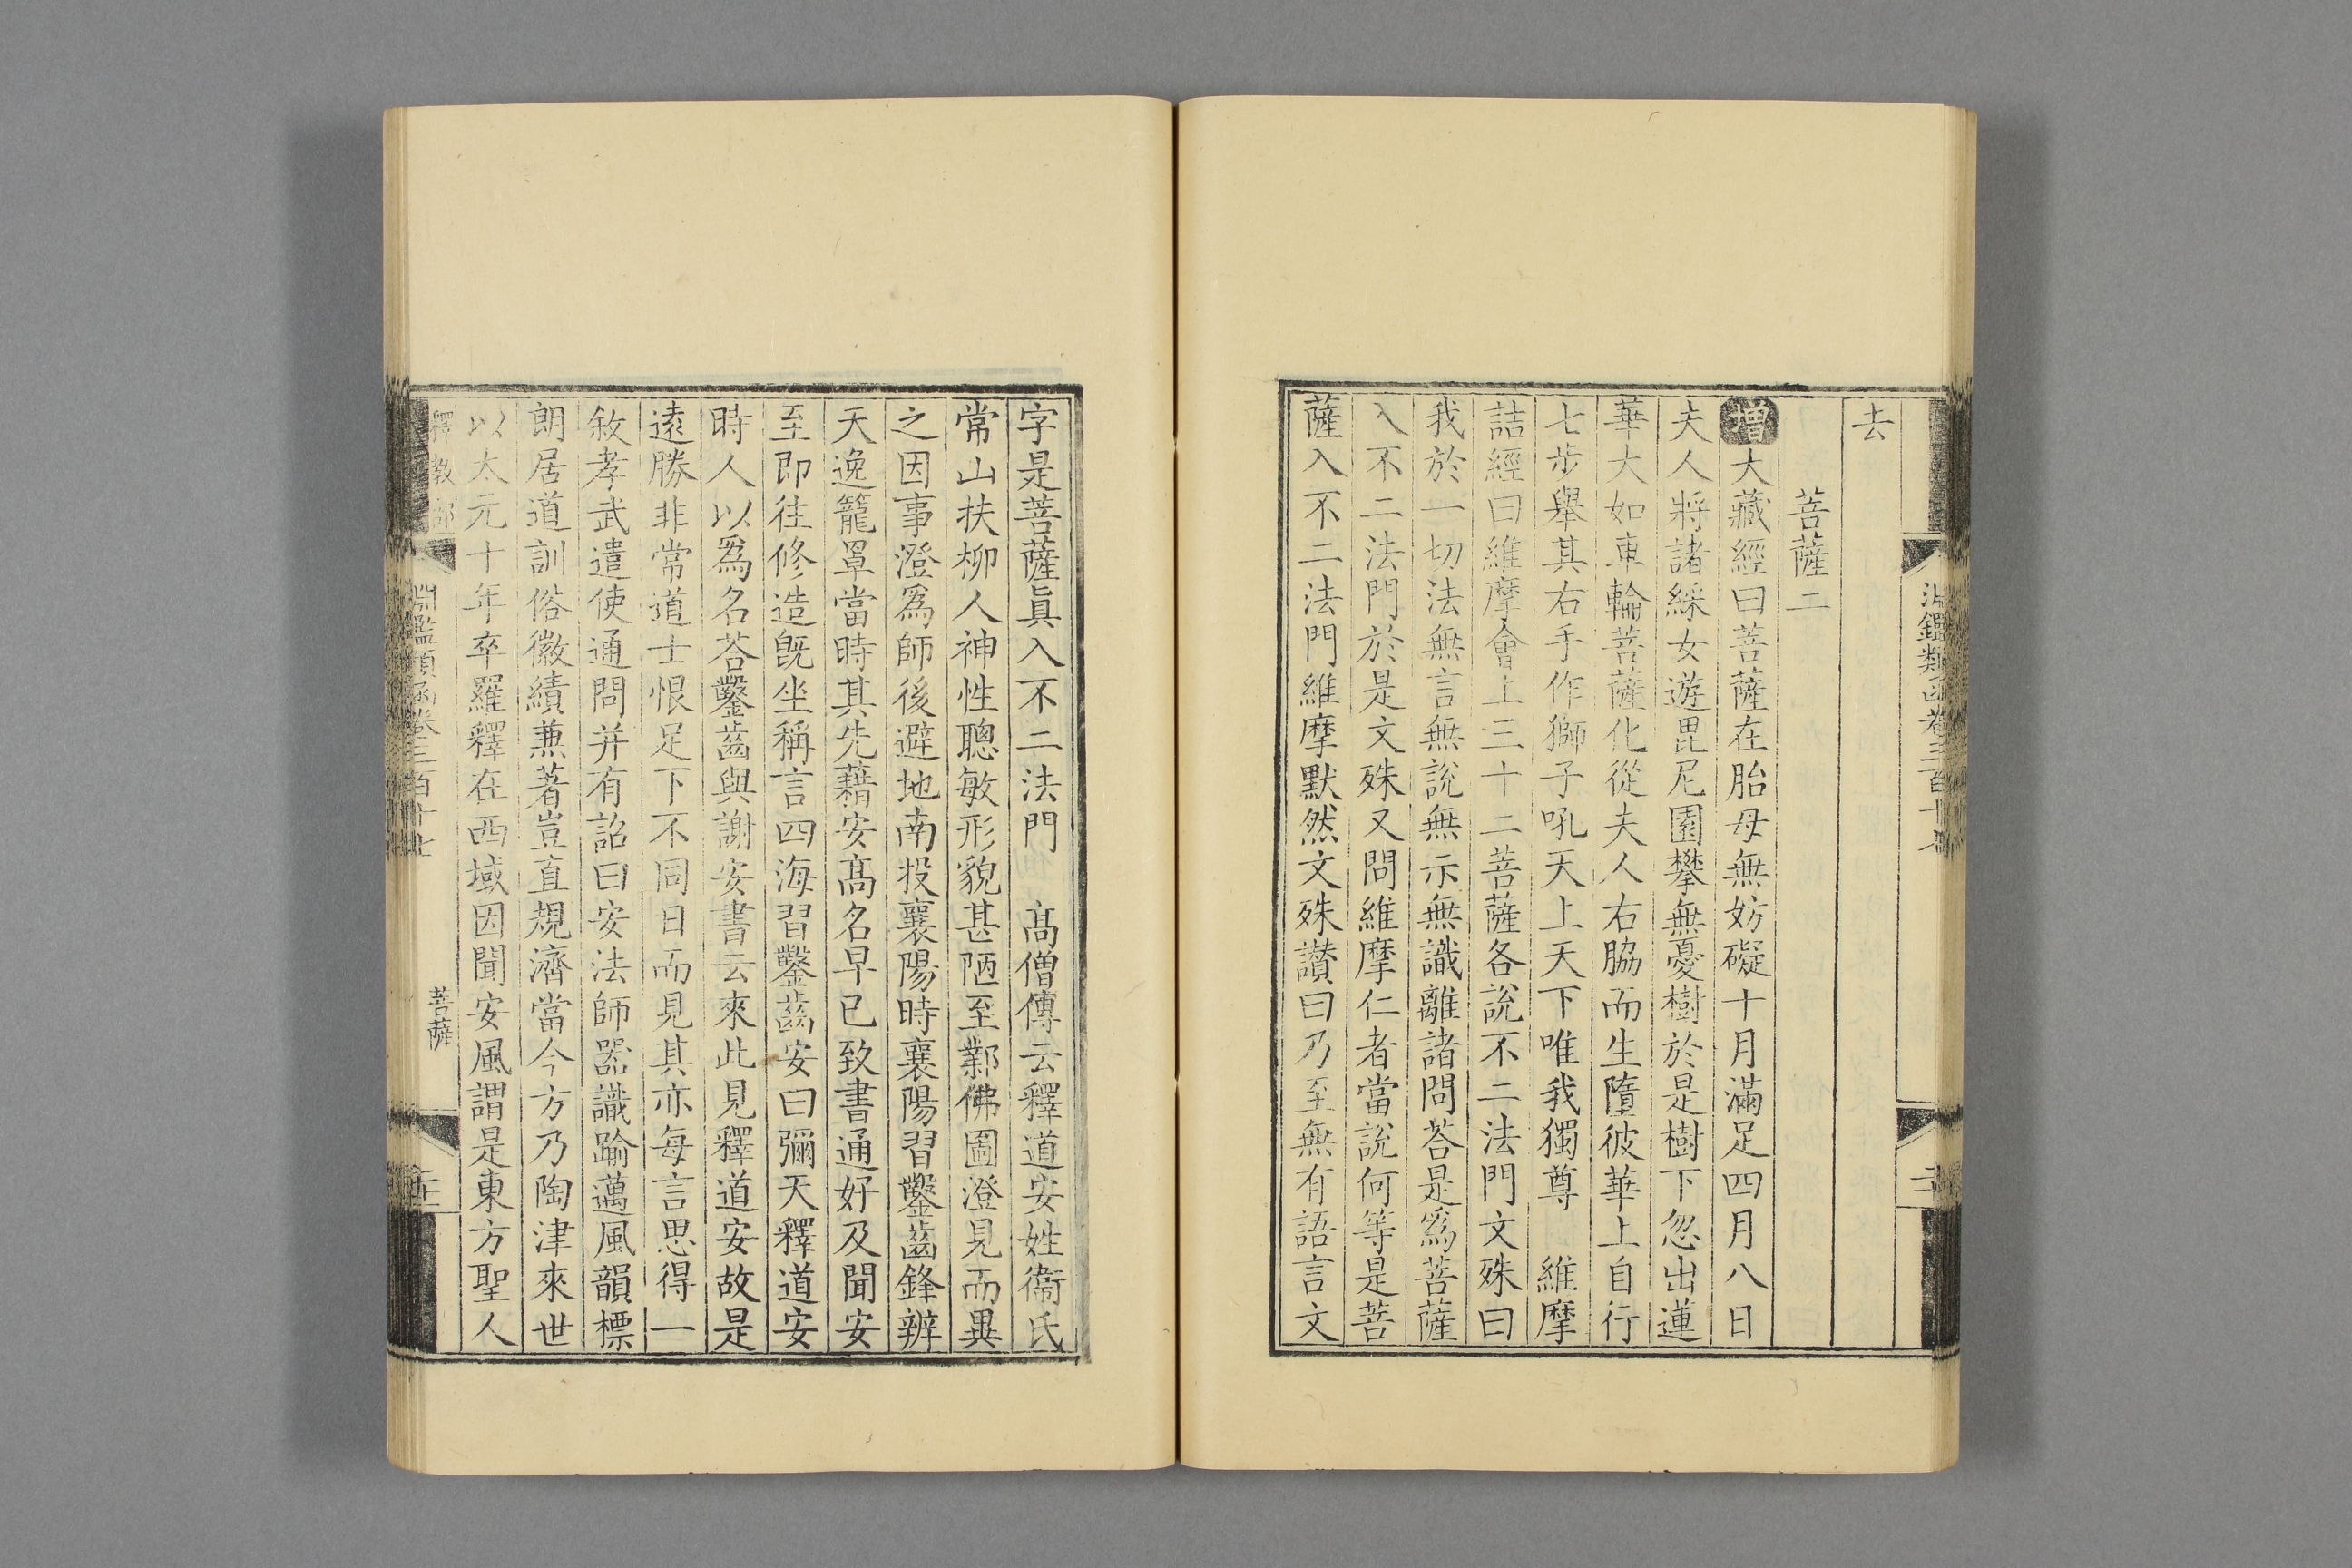 去
菩薩二
增大藏經曰菩薩在胎母無妨礙十月滿足四月八日
夫人將諸綵女遊毘尼園攀無憂樹於是樹下忽出蓮
華大如車輪菩薩化從夫人右脇而生墮彼華上自行
七步舉其右手作獅子吼天上天下唯我獨尊　維摩
詰經曰維摩會上三十二菩薩各說不二法門文殊曰
我於一切法無言無說無示無識離諸問荅是爲菩薩
入不二法門於是文殊又問維摩仁者當說何等是菩
薩入不二法門維摩默然文殊讚曰乃至無有語言文
字是菩薩眞入不二法門　髙僧傳云釋道安姓衞氏
常山扶柳人神性聰敏形貌甚陋至鄴佛圖澄見而異
之因事澄爲師後避地南投襄陽時襄陽習鑿齒鋒辨
天逸籠罩當時其先藉安髙名早已致書通好及聞安
至即往修造旣坐稱言四海習鑿齒安曰彌天釋道安
時人以爲名荅鑿齒與謝安書云來此見釋道安故是
遠勝非常道士恨足下不同日而見其亦每言思得一
敘孝武遣使通問并有詔曰安法師器識踰邁風韻標
朗居道訓俗徽績兼著豈直規濟當今方乃陶津來世
以太元十年卒羅釋在西域因聞安風謂是東方聖人
釋教部
淵鑑類函卷三百十七
菩薩